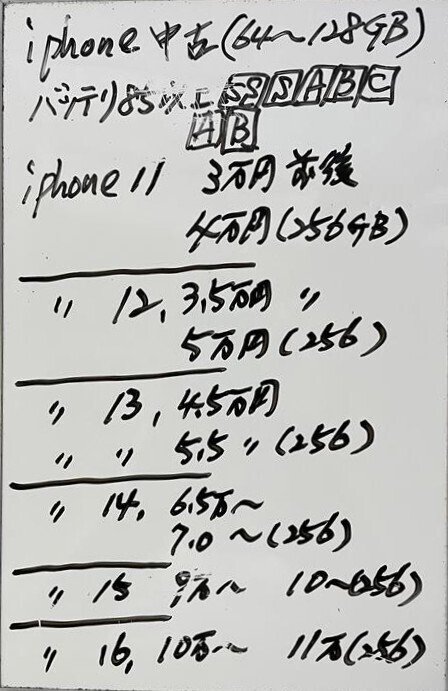 iphone 中古(64〜128GB)
バッテリ85以上 SS S A B C
A B
iphone 11 3万円 前後
4万円(256GB)
〃 12, 3,5万円 〃
5万円(256)
〃 13, 4,5万円
〃 〃 5,5 〃(256)
〃 14, 6,5万〜
7,0 〜(256)
〃 15 万〜 10〜(256)
〃 16, 10万〜 11万(256)